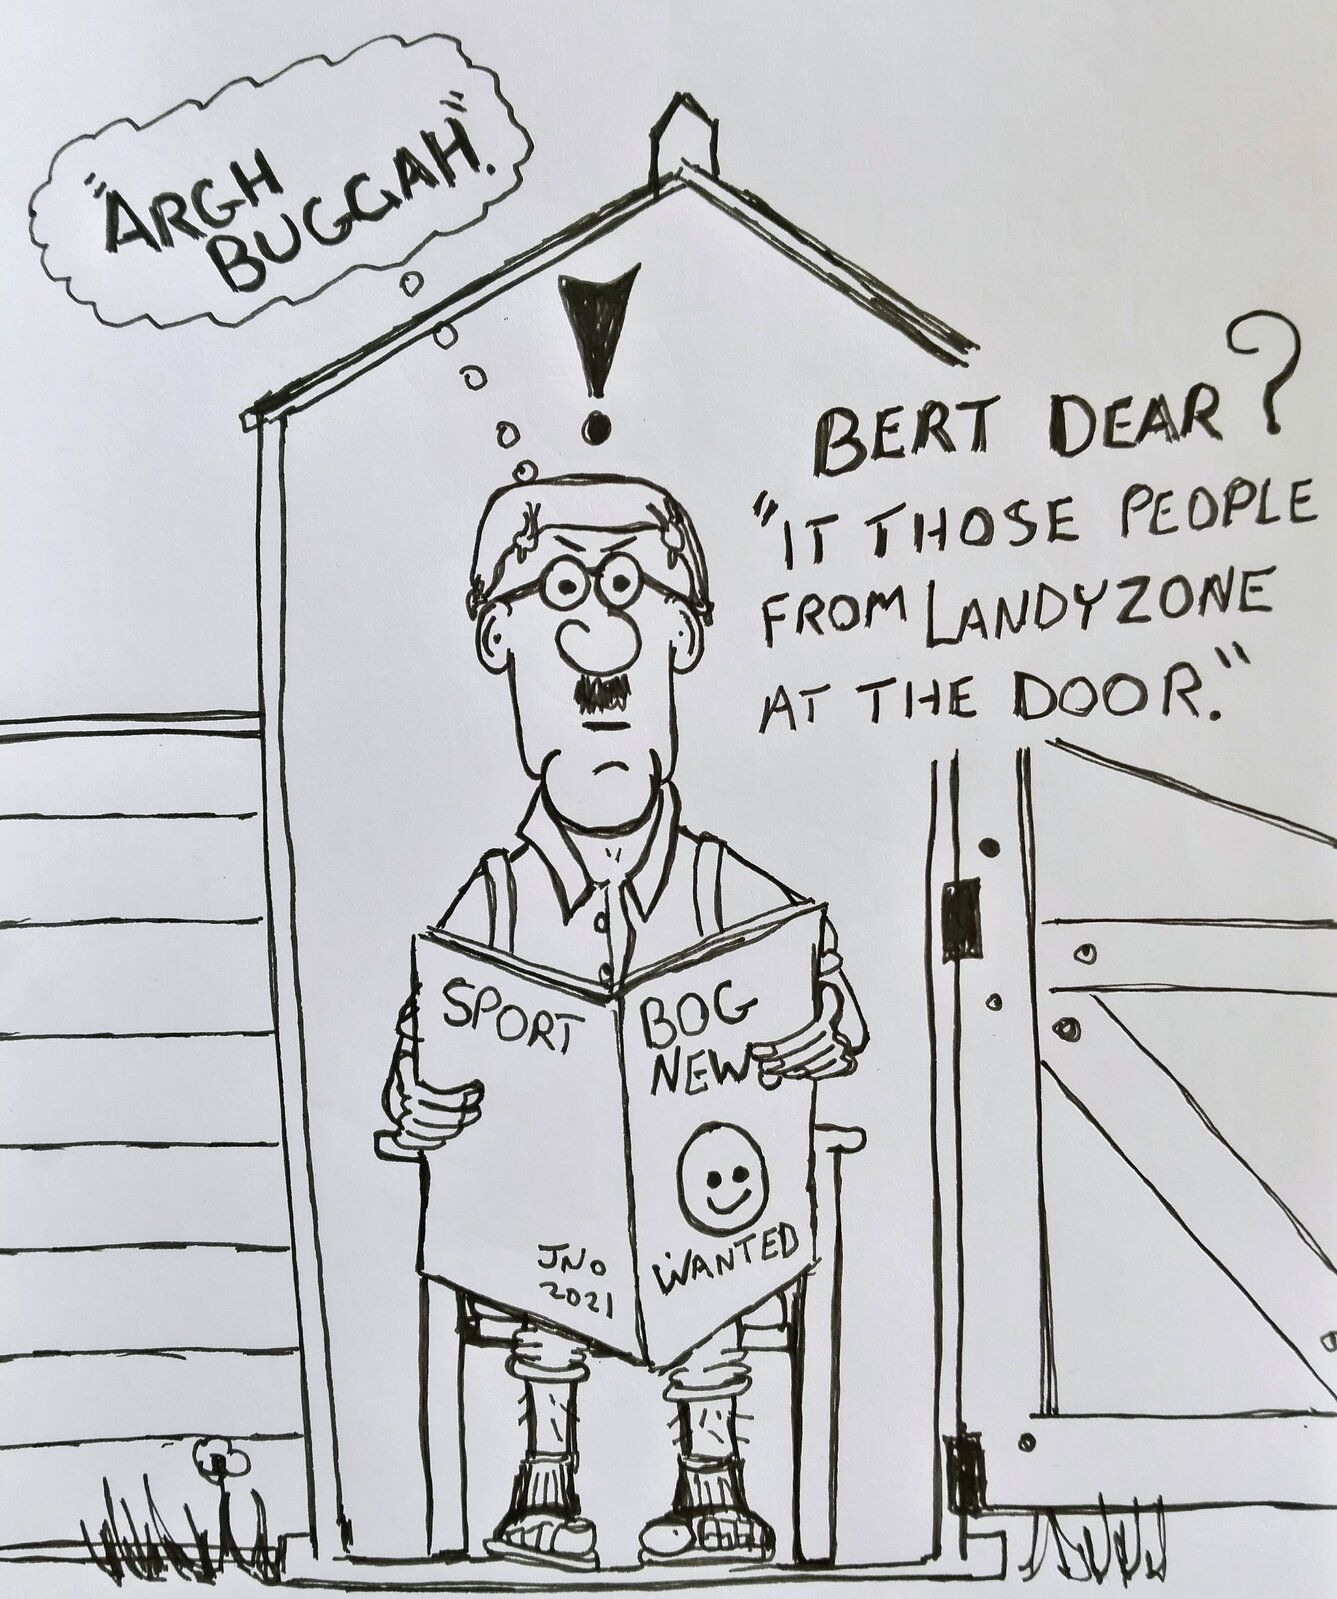 "ARGH
BUGGAH."
!
BERT DEAR?
"IT THOSE PEOPLE
FROM LANDYZONE
AT THE DOOR."
SPORT
JNO
2021
BOG
NEW
WANTED